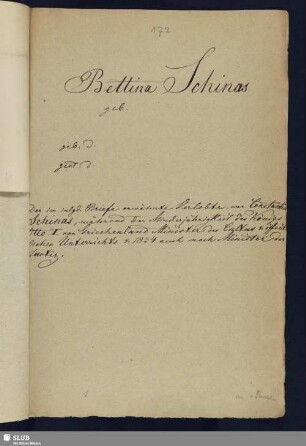 177
Bettina Schinas
geb.
geb. d.
gest. d.
Der im infgd. Briefe erwähnte Verlobte war Constantin
Schinas, während der Minderjährigkeit des Königs
Otto I von Griechenland Minister des Cultus u. öffent-
lichen Unterrichts u 1834 auch noch Minister der
Justiz.
SLUB